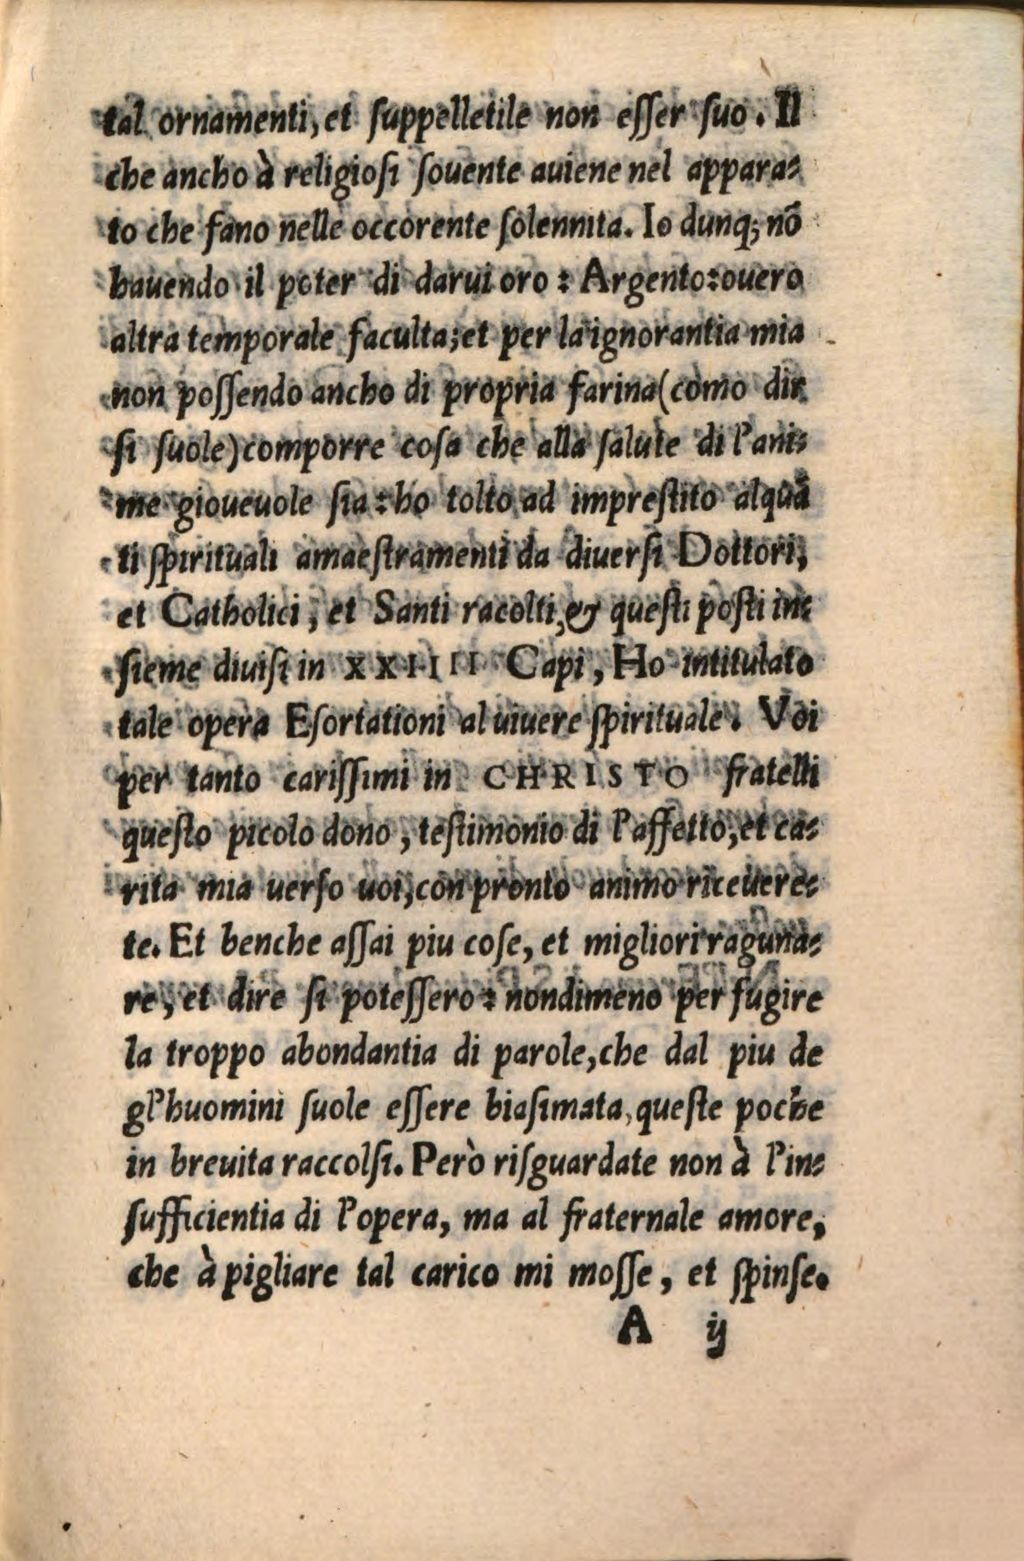 tal ornamenti, et ſuppelletile non eſſer ſuo. Il
che ancho à religioſi ſouente auiene nel appara⸗
to che fano nelle occorente ſolennita. Io dunq; nõ
hauendo il poter di darui oro: Argento: ouero
altra temporale faculta; et per la ignorantia mia
non poſſendo ancho di propria farina (como dir
ſi ſuole) comporre coſa che alla ſalute di l'ani⸗
me gioueuole ſia: ho tolto ad impreſtito alquã
ti ſpirituali amaeſtramenti da diuerſi Dottori,
et Catholici, et Santi racolti, & queſti poſti in⸗
ſieme diuiſi in XXIIII Capi, Ho intitulato
tale opera Eſortationi al uiuere ſpirituale. Voi
per tanto cariſſimi in CHRISTO fratelli
queſto picolo dono, teſtimonio di l'affetto, et ca⸗
rita mia uerſo uoi, con pronto animo riceuere⸗
te. Et benche aſſai piu coſe, et migliori raguna⸗
re, et dire ſi poteſſero: nondimeno per fugire
la troppo abondantia di parole, che dal piu de
gl'huomini ſuole eſſere biaſimata, queſte poche
in breuita raccolſi. Però riſguardate non à l'in⸗
ſufficientia di l'opera, ma al fraternale amore,
che à pigliare tal carico mi moſſe, et ſpinſe.
A ij